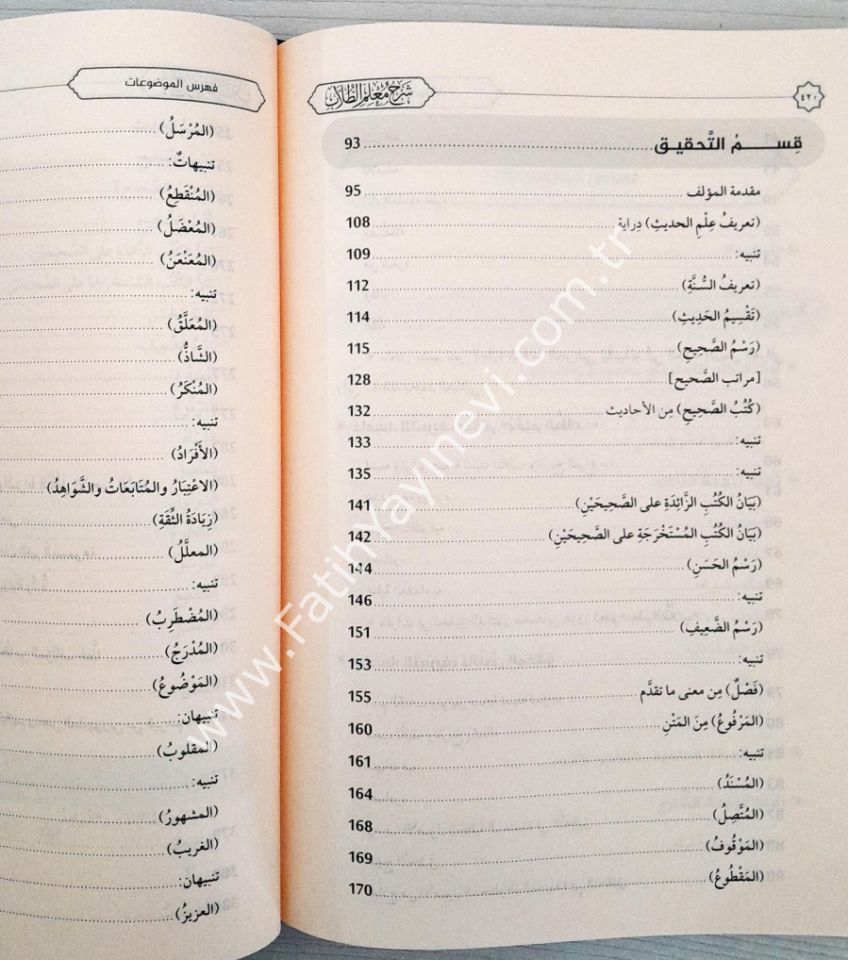 ٤٢٠
شرح معلم الطلاب
قِســـمُ التَّحقيـق 93
مقدمة المؤلف 95
(تعريفُ عِلْمِ الحديثِ) دِراية 108
تنبيه: 109
(تعريفُ السُّنَّةِ) 112
(تَقْسِيمُ الحَدِيثِ) 114
(رَسْمُ الصَّحِيحِ) 115
[مراتب الصَّحيح] 128
(كُتُبُ الصَّحِيحِ) مِن الأحاديث 132
تنبيه: 133
تنبيه: 135
(بَيَانُ الكُتُبِ الزَّائِدَةِ على الصَّحِيحَيْنِ) 141
(بَيَانُ الكُتُبِ المُسْتَخْرَجَةِ على الصَّحِيحَيْنِ) 142
(رَسْمُ الحَسَنِ) 144
تنبيه: 146
(رَسْمُ الضَّعِيفِ) 151
تنبيه: 153
(فَصْلٌ) مِن معنى ما تقدَّم 155
(المَرْفُوعُ) مِنَ المَتْنِ 160
تنبيه: 161
(المُسْنَدُ) 164
(المُتَّصِلُ) 168
(المَوْقُوفُ) 169
(المَقْطُوعُ) 170
فهرس الموضوعات
(المُرْسَلُ)
تنبيهاتٌ:
(المُنْقَطِعُ)
(المُعْضَلُ)
(المُعَنْعَنُ)
تنبيه:
(المُعَلَّقُ)
(الشَّاذُّ)
(المُنْكَرُ)
تنبيه:
(الأَفْرَادُ)
(الاعْتِبَارُ والمُتَابَعَاتُ والشَّوَاهِدُ)
(زِيَادَةُ الثِّقَةِ)
(المعلَّلُ)
تنبيه:
(المُضْطَرِبُ)
(المُدْرَجُ)
(المَوْضُوعُ)
تنبيهان:
(المقلوبُ)
تنبيه:
(المشهورُ)
(الغريبُ)
تنبيهان:
(العزيزُ)
www.FatihYayinevi.com.tr